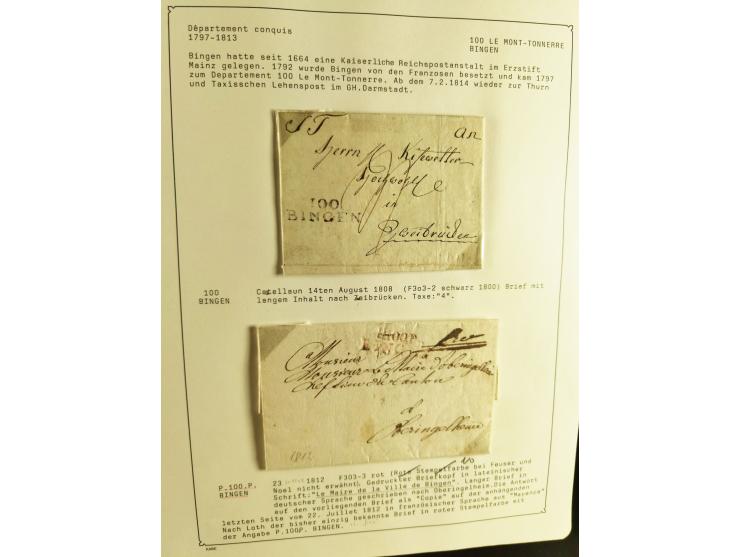 Département conquis
1797-1813
100 LE MONT-TONNERRE
BINGEN
Bingen hatte seit 1664 eine Kaiserliche Reichspostanstalt im Erzstift
Mainz gelegen. 1792 wurde Bingen von den Franzosen besetzt und kam 1797
zum Departement 100 Le Mont-Tonnerre. Ab dem 7.2.1814 wieder zur Thurn
und Taxisschen Lehenspost im GH.Darmstadt.
An
Herrn
in
100
BINGEN
100
BINGEN
Castellaun 14ten August 1808 (F3o3-2 schwarz 1800) Brief mit
langem Inhalt nach Zweibrücken. Taxe:"4".
Monsieur
Monsieur Le Maire d'oberingelheim
chef lieu du Canton
à
Oberingelheim
1812
P.100.P.
BINGEN
23 1812 F303-3 rot (Rote Stempelfarbe bei Feuser und
Noel nicht erwähnt. Gedruckter Briefkopf in lateinischer
Schrift:"Le Maire de la Ville de Bingen". Langer Brief in
deutscher Sprache geschrieben nach Oberingelheim.Die Antwort
auf den vorliegenden Brief als "Copie" auf der anhängenden
letzten Seite vom 22. Juillet 1812 in französischer Sprache aus "Mayence"
Nach Loth der bisher einzig bekannte Brief in roter Stempelfarbe mit
der Angabe P.100P. BINGEN.
KABE